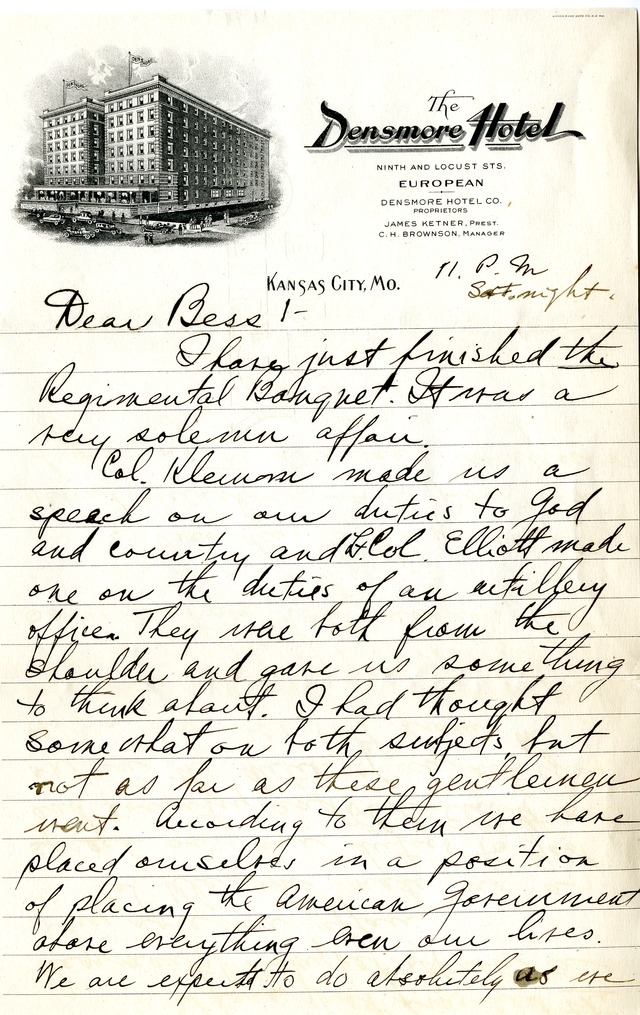 The
Densmore Hotel
NINTH AND LOCUST STS.
EUROPEAN
DENSMORE HOTEL CO.
PROPRIETORS
JAMES KETNER, PREST.
C. H. BROWNSON, MANAGER
KANSAS CITY, MO.
11. P. M
Sat. night.
Dear Bess :-
I have just finished the
Regimental Banquet. It was a
very solemn affair.
Col. Klemm made us a
speech on our duties to God
and country and Lt. Col. Elliott made
one on the duties of an artillery
officer. They were both from the
shoulder and gave us something
to think about. I had thought
somewhat on both subjects but
not as far as these gentlemen
went. According to them we have
placed ourselves in a position
of placing the American Government
above everything even our lives.
We are expected to do absolutely as we